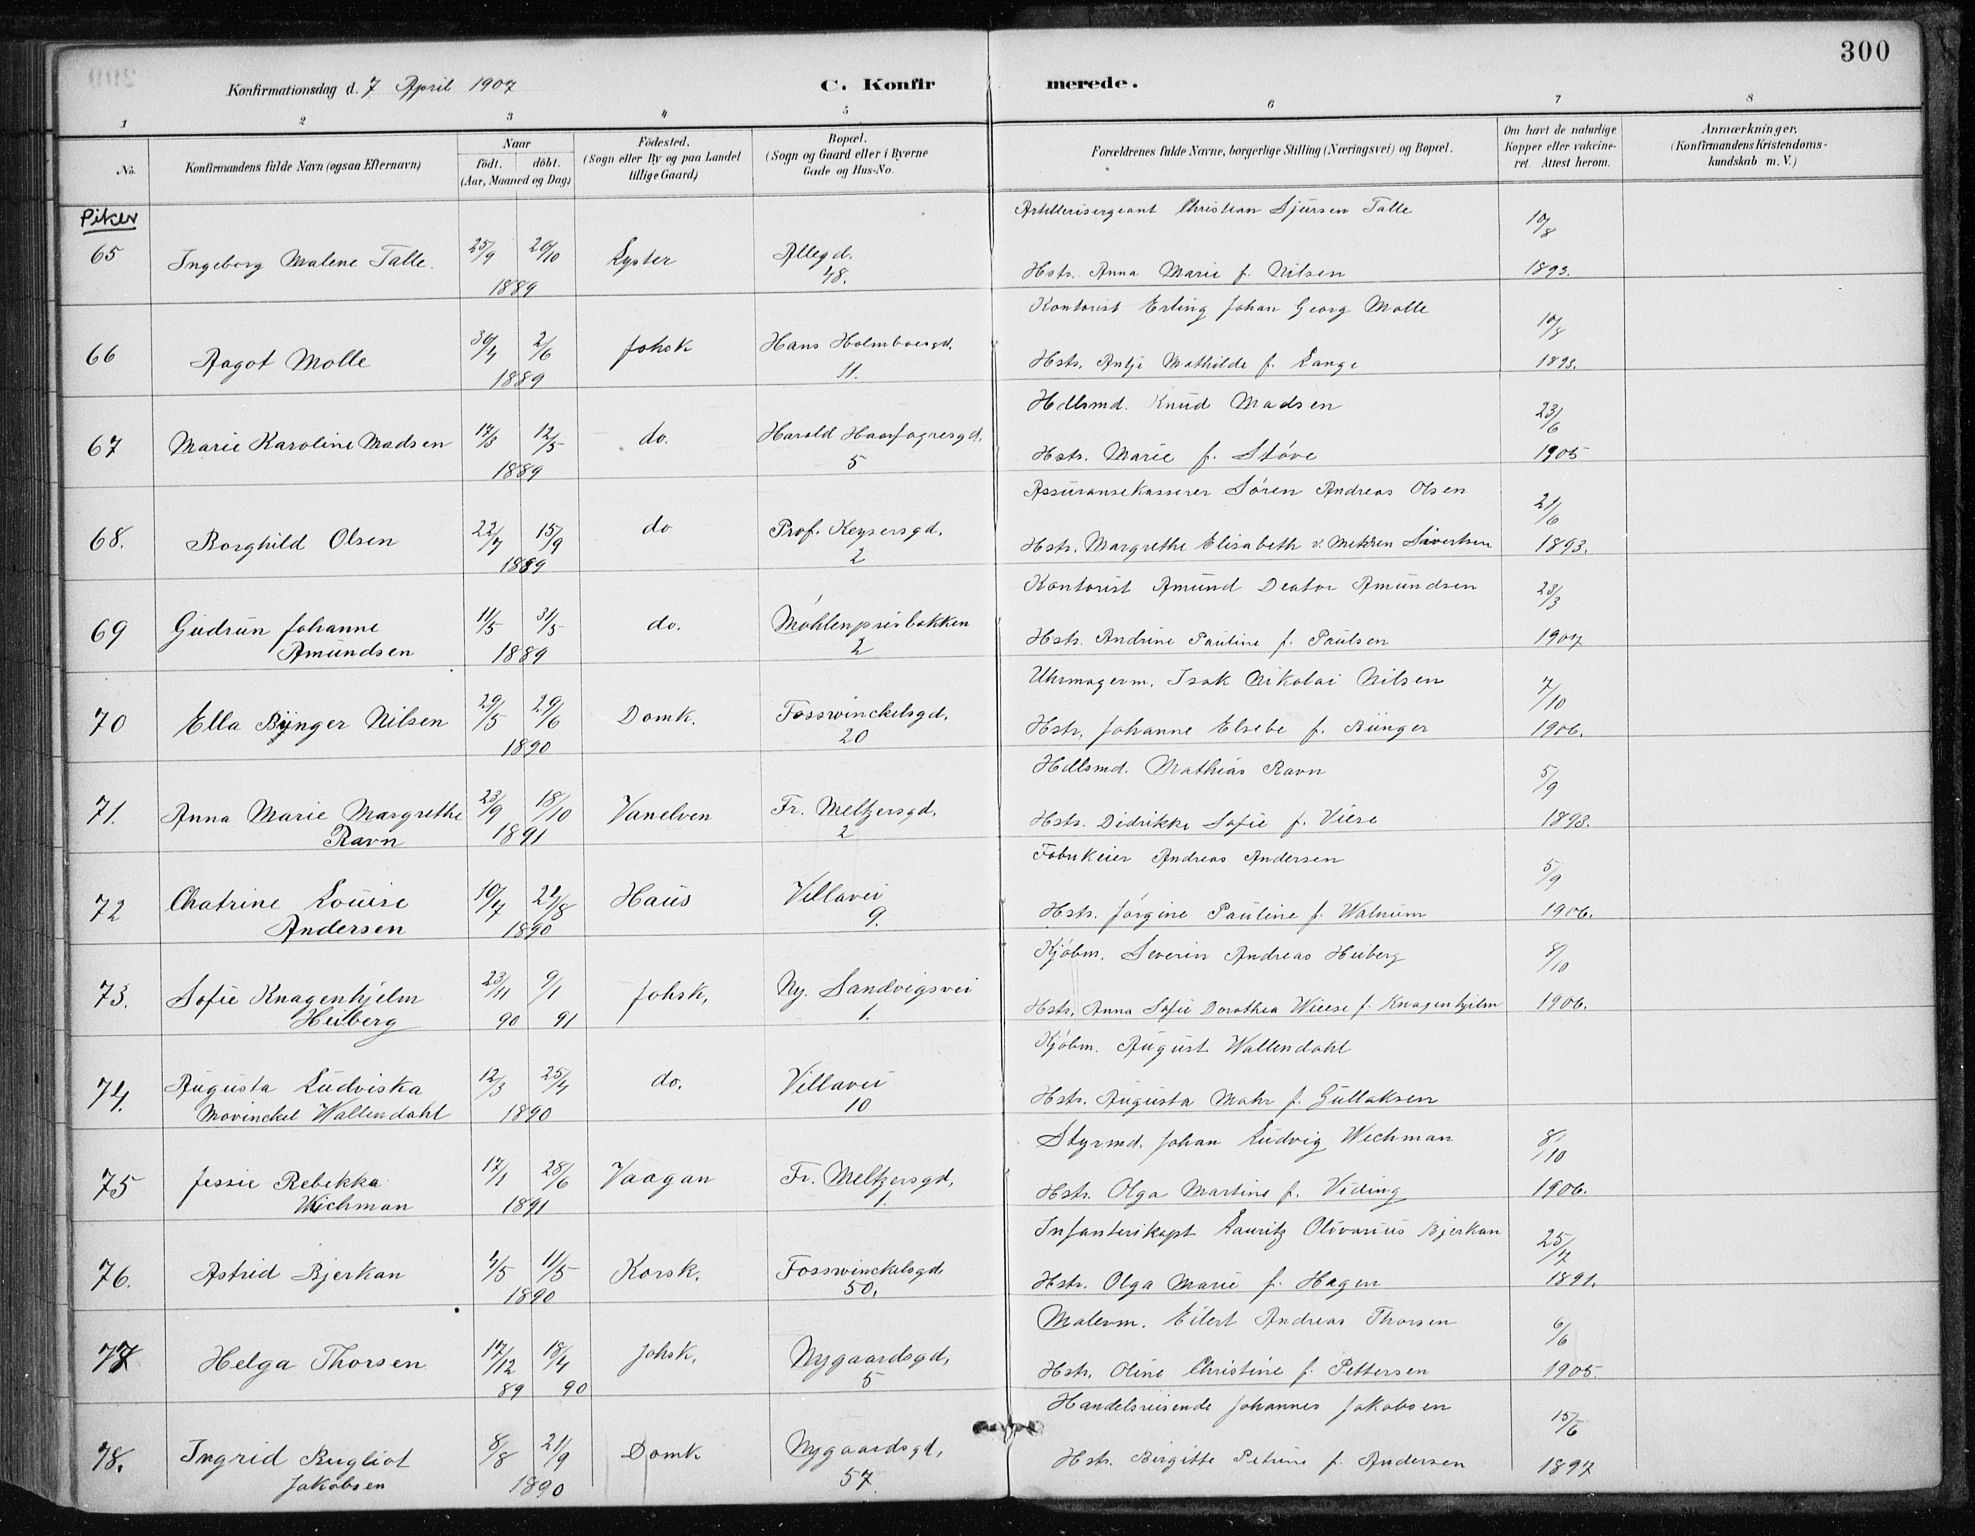 300
Konfirmationsdag d. 7 April 1907 C. Konfirmerede.
1 2 3 4 5 6 7 8
No. Konfirmandens fulde Navn (ogsaa Efternavn) Naar födt. döbt. (Aar, Maaned og Dag) Födested. (Sogn eller By og paa Landet tillige Gaard) Bopæl. (Sogn og Gaard eller i Byerne Gade og Hus-No. Forældrenes fulde Navne, borgerlige Stilling (Næringsvei) og Bopæl. Om havt de naturlige Kopper eller vakcineret. Attest herom. Anmærkninger, (Konfirmandens Kristendomskundskab m. V.)
Piker
Artillerisergeant Christian Sjursen Talle 10/8
65 Ingeborg Malene Talle. 25/9 20/10 Lyster Allegd.
1889 48. Hstr. Anna Marie f. Nilsen 1893.
Kontorist Erling Johan Georg Molle 10/8
66 Aagot Molle 30/4 2/6 Johsk Hans Holmboesgd.
1889 11. Hstr. Antje Mathilde f. Lange 1893.
Hdlsmd. Knud Madsen 23/6
67 Marie Karoline Madsen 17/3 12/5 do. Harald Haarfagresgd.
1889 5 Hstr. Marie f. Støve 1905
Assuransekasserer Søren Andreas Olsen 21/6
68. Borghild Olsen 22/7 15/9 do Prof. Keysersgd.
1889 2 Hstr. Margrethe Elisabeth v. Mehren Sivertsen 1893.
Kontorist Amund Deator Amundsen 23/3
69 Gudrun Johanne 11/5 31/5 do. Møhlenprisbakken
Amundsen 1889 2 Hstr. Andrine Pauline f. Paulsen 1907
Uhrmagerm. Isak Nikolai Nilsen 7/10
70 Ella Bünger Nilsen 29/5 29/6 Domk. Fosswinckelsgd.
1890 20 Hstr. Johanne Elsebe f. Bünger 1906.
Hdlsmd. Mathias Ravn 5/9
71. Anna Marie Margrethe 23/9 18/10 Vanelven Fr. Meltzersgd.
Ravn 1891 2 Hstr. Didrikke Sofie f. Viese 1893.
Fabrikeier Andreas Andersen 5/9
72 Chatrine Louise 10/7 21/8 Haus Villavei
Andersen 1890 9. Hstr. Jørgine Pauline f. Walnum 1906.
Kjøbm. Severin Andreas Heiberg 8/10
73. Sofie Knagenhjelm 23/11 9/1 Johsk, Ny. Sandvigsvei
Heiberg 90 91 1. Hstr. Anna Sofie Dorothea Wiese f. Knagenhjelm 1906.
Kjøbm. August Wallendahl
74. Augusta Ludviska 12/3 25/4 do. Villavei
Movinckel Wallendahl 1890 10 Hstr. Augusta Mohr f. Gullaksen
Styrmd. Johan Ludvig Wichman 8/10
75 Jessie Rebekka 17/1 28/6 Vaagan Fr. Meltzersgd,
Wichman 1891 1. Hstr. Olga Martine f. Viding 1906.
Infanterikapt Lauritz Olivarius Bjerkan 25/7
76. Astrid Bjerkan 4/5 11/5 Korsk. Fosswinckelsgd.
1890 50. Hstr. Olga Marie f. Hagen 1891.
Malerm. Eilert Andreas Thorsen 6/6
77 Helga Thorsen 17/12 18/4 Johsk. Nygaardsgd,
89 90 5 Hstr. Oline Christine f. Pettersen 1905.
Handelsreisende Johannes Jakobsen 15/6
78. Ingrid Bugliot 8/8 21/9 Domk Nygaardsgd,
Jakobsen 1890 57. Hstr. Birgitte Petrine f. Andersen 1897